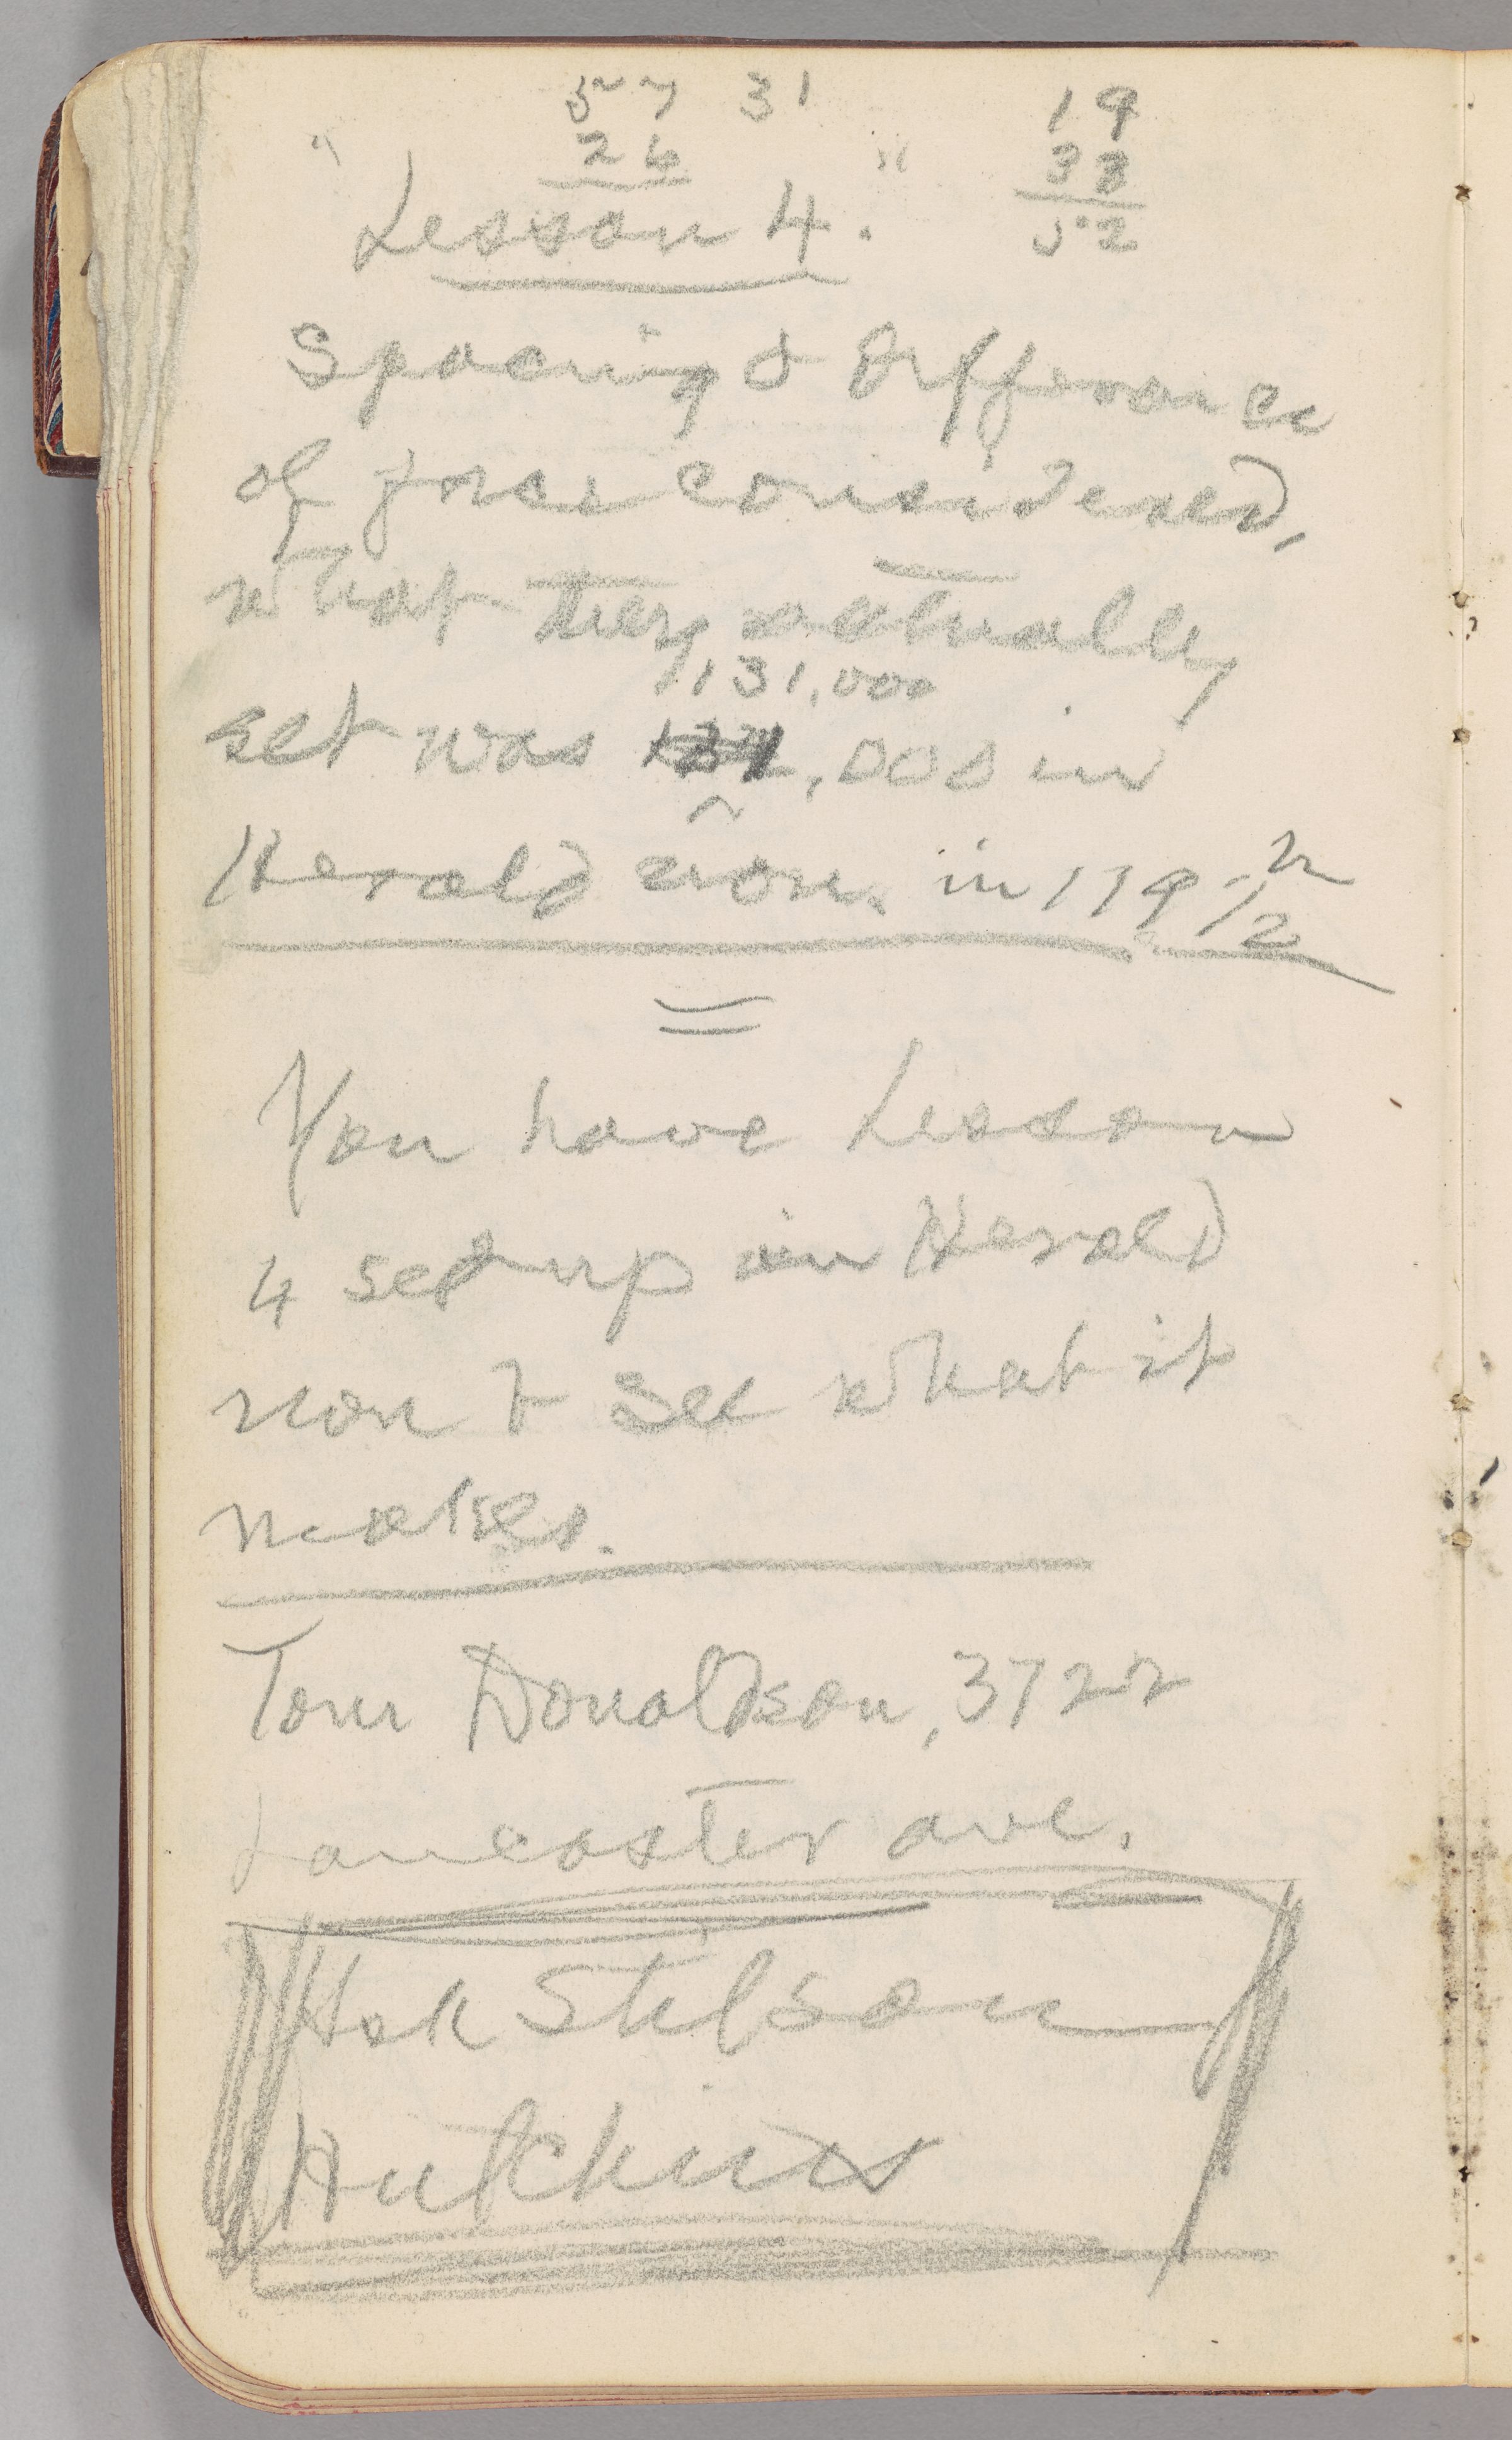 57 31 19
26 33
52
" Lesson 4. "
Spacing & Difference
of faces considered,
what they actually
131,000
set was ,000 in
Herald non. in 119 h
1/2
You have Lesson
4 set up in Herald
non & see what it
makes.
Tom Donaldson, 3722
Lancaster ave.
Ask Stilson
Hutchins